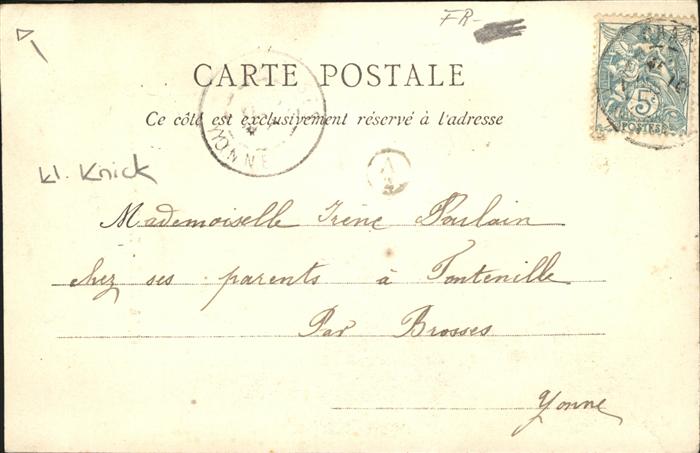 FR-
CARTE POSTALE
Ce côté est exclusivement réservé à l'adresse
YONNE
5c
POSTES
A
2
kl. Knick
Mademoiselle Irène Poulain
chez ses parents à Fontenille
Par Brosses
Yonne